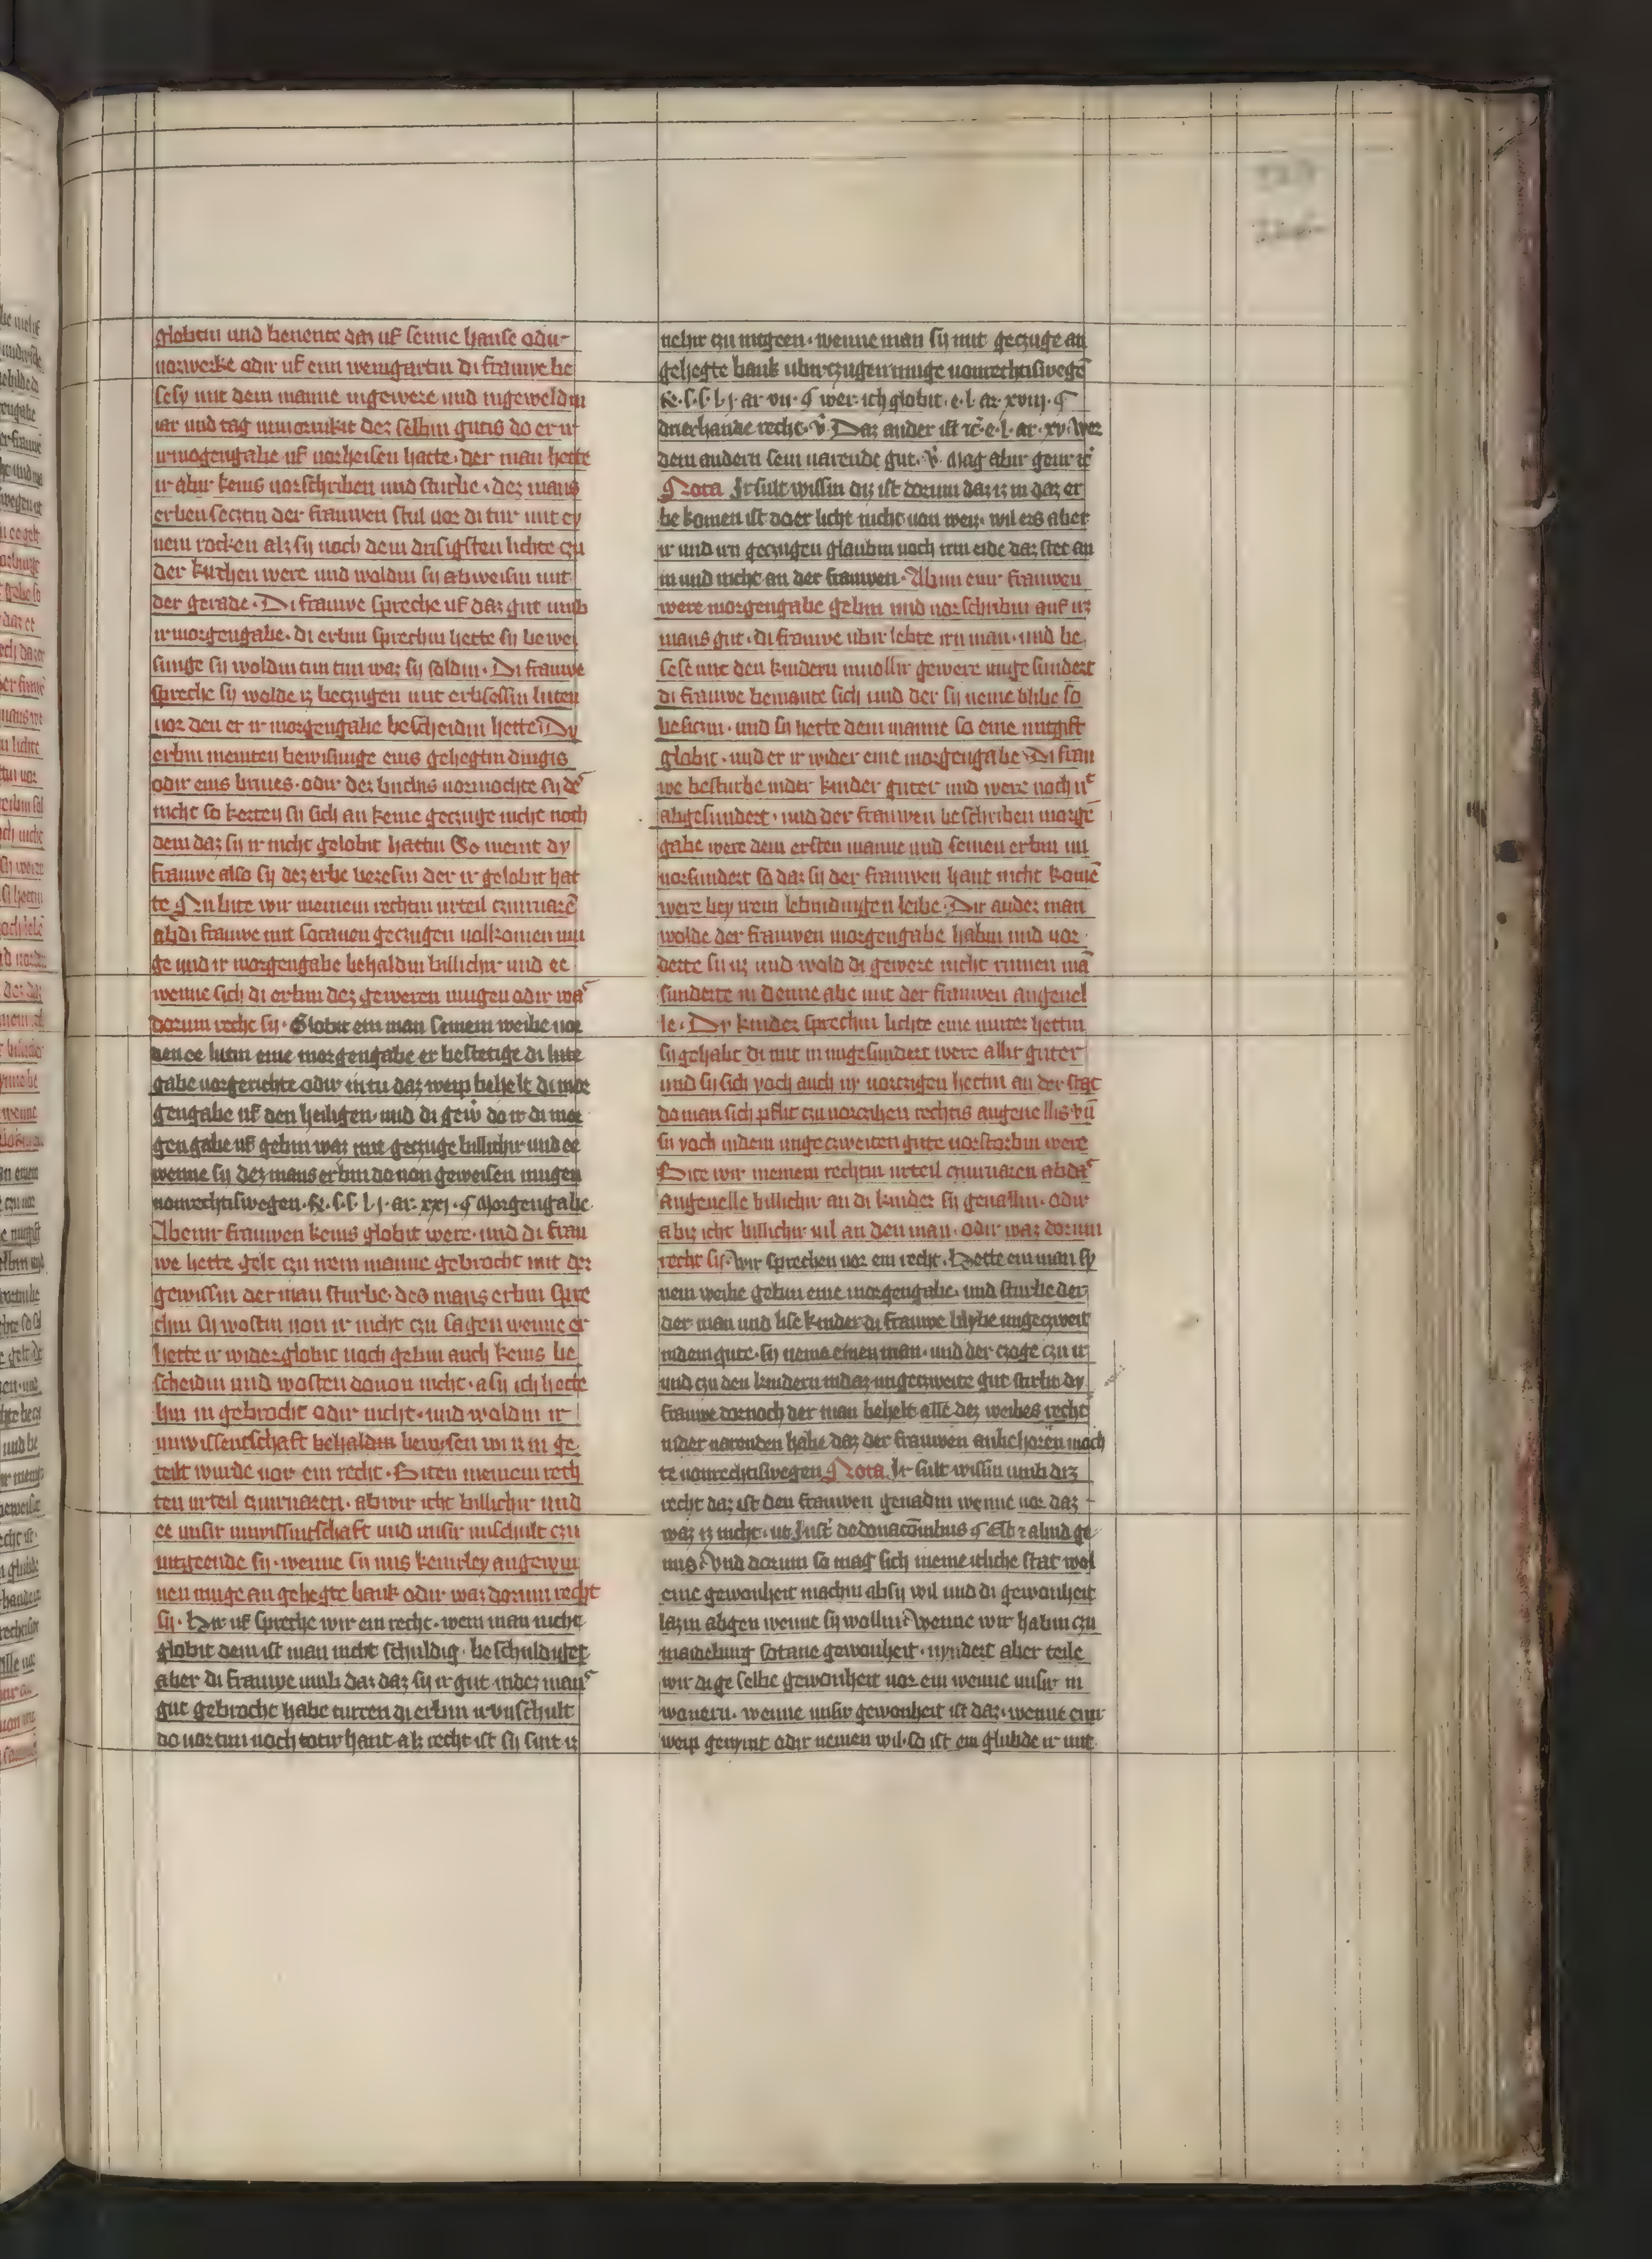 globtin und benente daz uf seime hause odir
uorwerke odir uf ein weingartin di frauwe be
sesy mit dem manne ingewere und ingeweldin
iar und tag
irmorgengabe uf uorheisen hatte. der man hette
ir abir keins uorschriben und sturbe. dez mans
erben seczten der frauwen stul uor di tur mit ey
nem rocken alz sy noch dem drisigsten lichte czu
der kirchen were und woldin sy abweisin mit
der gerade. Di frauwe spreche uf daz gut umb
ir morgengabe. di erbin sprechin hette sy bewei
sunge sy woldin tun waz sy soldin. Di frauwe
spreche sy wolde iz beczugen mit erbsessin luten
uor den er ir morgengabe bescheidin hette Dy
erbin meinten bewisunge eins gehegtin dingis
odir eins briues. odir dez buchis uormochte sy dez
nicht so kerten sy sich an keine geczuge nicht noch
dem daz sy ir nicht gelobit hattin So meint dy
frauwe also sy dez erbe besessin der ir gelobit hat
te Nu bite wir meinem rechtin urteil czuiruaren
ab di frauwe mit sotanen geczugen uolkomen mu
ge und ir morgengabe behaldin billichir und ee
wenne sich di erbin dez geweren mugen odir waz
dorum recht sy. Globit ein man seinem weibe uor
den ee lutin eine morgengabe er bestetige di
gabe uorgerichte odir nicht daz weip behelt di mor
gengabe uf den heiligen. und di gew do ir di mor
gen gabe uf gebin waz mit geczuge billichir und ee
wenne sy dez mans erbin do uon geweisen mugen
uonrechtiswegen. R. s. s. l j. ar. xxj. ¶ Morgengabe.
Ab eimir frauwen keins globit were. und di frau
we hette gelt czu irem manne gebrocht mit der
gewissin der man sturbe. des mans erbin spre
chin sy wostin uon ir nicht czu sagen wenne er
hette ir wider globit noch gebin auch keins be
scheidin und wosten douon nicht. a sy ich hette
hin in gebrocht odir nicht. und woldin ir
unwissentschaft behaldin bewisen
teilt wurde uor ein recht. Biten meinem rech
ten urteil czuiruaren. ab wir icht billichir und
ee unsir unwissintschaft und unsir unschult czu
intgeende sy. wenne sy uns keinerley angewin
nen muge an gehegte bank odir waz dorum recht
sy. Hir uf spreche wir ein recht. wem man nicht
globit dem ist man nicht schuldig. beschuldiget
aber di frauwe umb daz daz sy ir gut indez mans
gut gebrocht habe turren di erbin ir unschult
do uor tun noch totir hant alz recht ist sy sint iz
nehir czu intgeen. wenne man sy mit geczuge an
gehegte bank ubirczugen muge uonrechtiswegen
R. s. s. l j. ar vii. ¶ wer. ich globit. e. l. ar. xviij. ¶
drierhande recht. v. Daz ander ist etc. e. l. ar. xv. Wer
dem andern sein uarende gut. v. Mag abir geur etc
Nota Ir sult wissin diz ist dorum daz iz in daz er
be komen ist do er licht nicht uon weis. wil ers aber
ir und irn geczugen glaubin noch irm eide daz stet an
im und nicht an der frauwen. Ab nu einir frauwen
were morgengabe gebin und uorschribin auf irs
mans gut. di frauwe ubir lebte irn man. und be
sese mit den kindern inuollir gewere unge sundert
di frauwe bemante sich und der sy neme blibe so
besiczin. und sy hette dem manne so eine mitgift
globit. und er ir wider eine morgengabe Di frau
we besturbe inder kinder guter und were noch nicht
abgesundert. und der frauwen beschriben morgen
gabe were dem ersten manne und seinen erbin un
uorsundert so daz sy der frauwen hant nicht komen
were bey irem lebindingen leibe. Dir ander man
wolde der frauwen morgengabe habin und uor
derte sy uz und wold di gewere nicht rumen man
sunderte in denne abe mit der frauwen angeuel
le. Dy kinder sprechin lichte eine muter hettin
sy gehabt di mit in ungesundert were allir guter
und sy sich voch auch uorczigen hettin an der stat
do man sich pflit czu uorczihen rechtis angeuellis. und
sy voch indem ungeczweiten gute uorstorbin were
Bite wir meinem rechtin urteil czuiruaren ab daz
angeuelle billichir an di kinder sy geuallin. odir
abiz icht billichir uil an den man. odir waz dorum
recht sy. Wir sprechen uor ein recht. Hette ein man sy
nem weibe gebin eine morgengabe. und sturbe der
der man und lise kinder di frauwe blybe ungeczweit
indem gute. sy neme einen man. und der czoge czu ir
und czu den kindern indaz ungeczweite gut sturbe dy
frauwe dornoch der man behelt alle dez weibes recht
inder uarenden habe daz der frauwen anbehoren moch
te uonrechtiswegen Nota Ir sult wissin umb diz
recht daz ist den frauwen genadin wenne uor daz
waz iz nicht. ut Just de donacionibus ¶ Est et aliud ge
nus. Vnd dorum so mag sich meine itliche stat wol
eine gewonheit machin ab sy wil und di gewonheit
lazin abgen wenne sy wollin. Wenne wir habin czu
maideburg sotane gewonheit. nyndert aber teile
wir di ge selbe gewonheit uor ein wenne unsir in
wonern. wenne unsir gewonheit ist daz. wenne einir
weip genymt odir nemen wil. so ist ein glubde ir mit